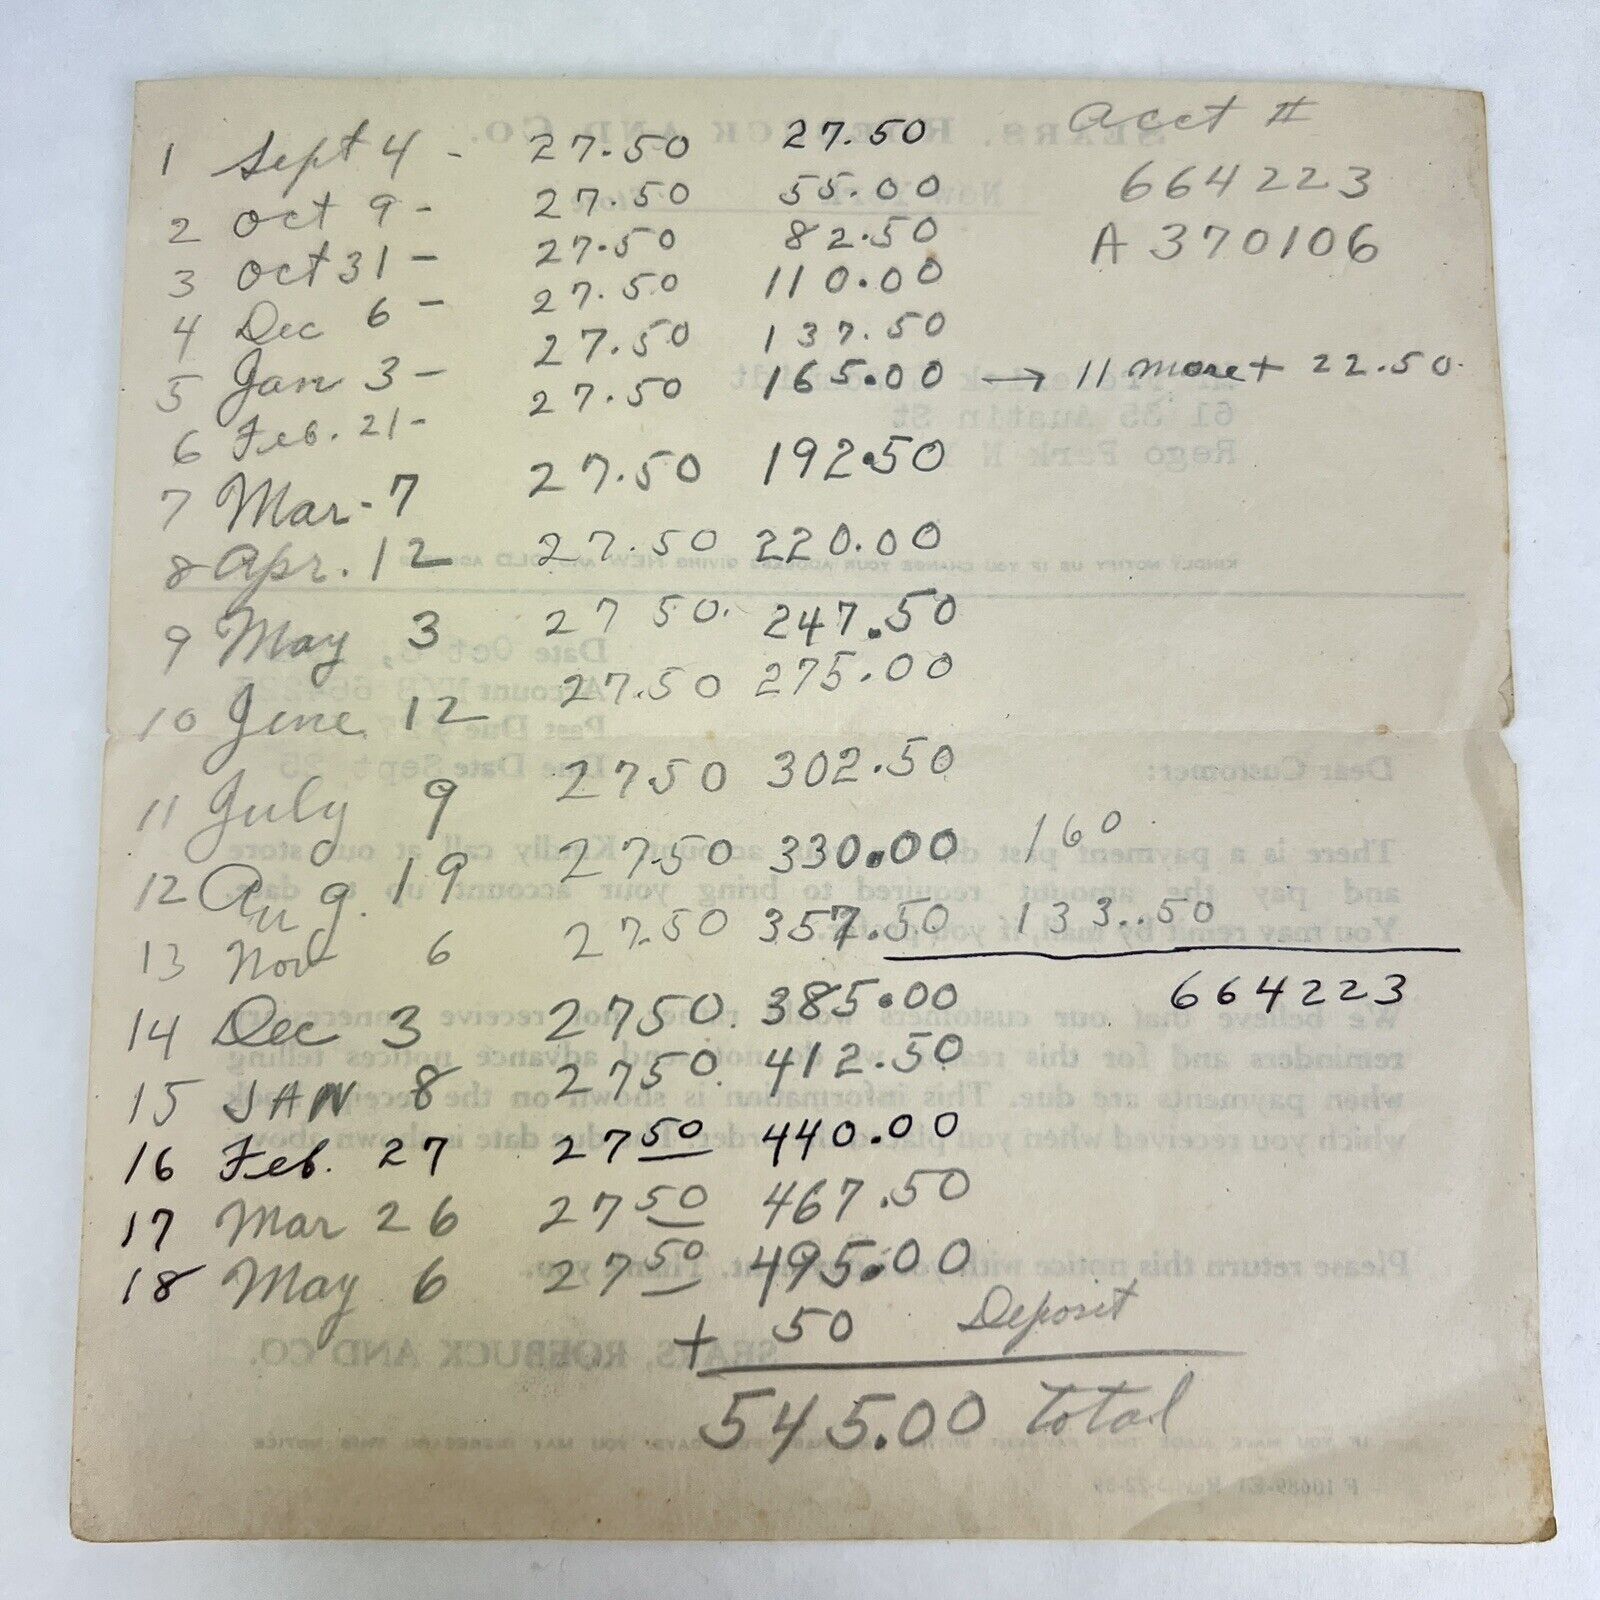 Acct #
1 Sept 4 - 27.50 27.50
664223
2 Oct 9 - 27.50 55.00
A 370106
3 Oct 31 - 27.50 82.50
4 Dec 6 - 27.50 110.00
5 Jan 3 - 27.50 137.50
6 Feb. 21 - 27.50 165.00 → 11 more + 22.50.
7 Mar - 7 27.50 192.50
8 Apr. 12 27.50 220.00
9 May 3 27 50. 247.50
10 June 12 27.50 275.00
11 July 9 27.50 302.50
12 Aug. 19 27.50 330.00 160
13 Nov 6 27.50 357.50 133..50
14 Dec 3 2750. 385.00 664223
15 JAN 8 2750. 412.50
16 Feb. 27 27 50 440.00
17 Mar 26 27 50 467.50
18 May 6 27 50 495.00
+ 50 Deposit
545.00 total
SEARS, ROEBUCK AND CO.
61 35 Austin St
Rego Park N
KINDLY NOTIFY US IF YOU CHANGE YOUR ADDRESS GIVING NEW AND OLD
Date Oct
Account
Past Due
Due Date Sept 25
Dear Customer:
There is a payment past account. Kindly call at our store
and pay the amount required to bring your account up to date.
You may remit by mail, if you
We believe that our customers would rather not receive unnecessary
reminders and for this reason we do not send advance notices telling
when payments are due. This information is shown on the
which you received when you due date is shown above.
Please return this notice with your payment. Thank you.
SEARS, ROEBUCK AND CO.